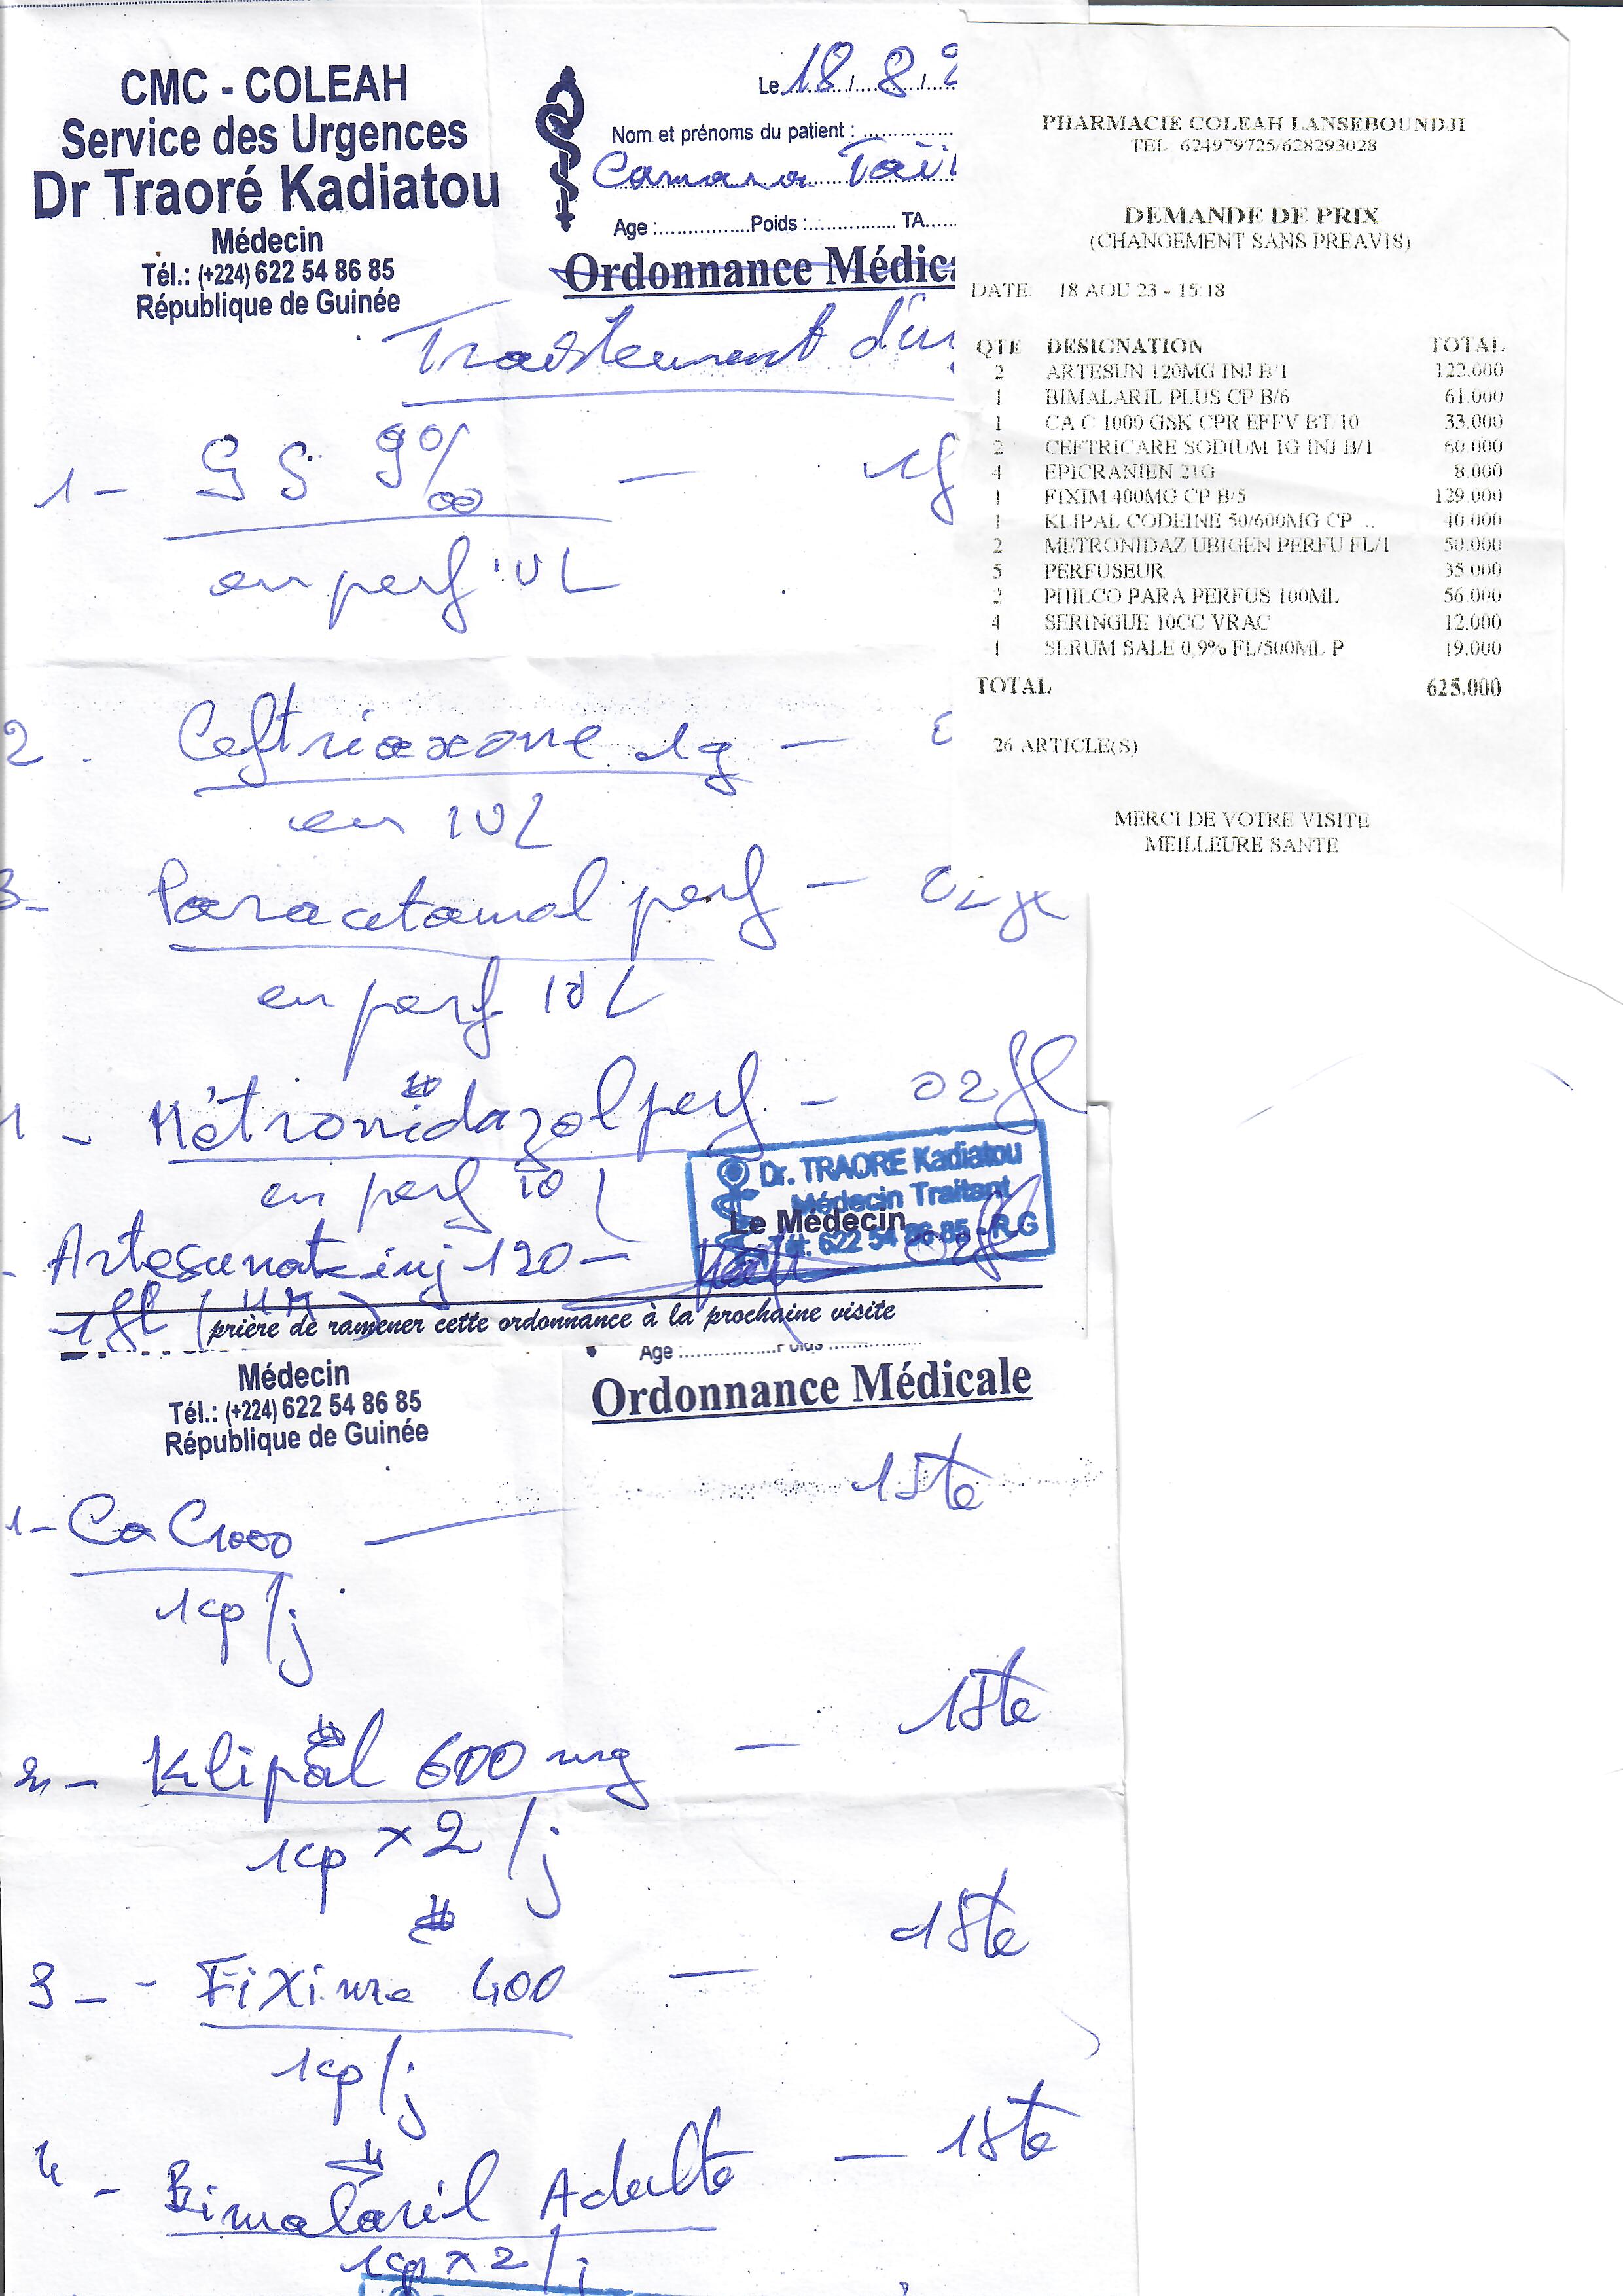 CMC - COLEAH
Service des Urgences
Dr Traoré Kadiatou
Médecin
Tél.: (+224) 622 54 86 85
République de Guinée
Le 18/8/2
Nom et prénoms du patient :
Camara
Age : Poids : TA
Ordonnance Médica
Traitement d'ur
1 -
en perf IVL
2. Ceftriaxone 1g -
en IVL
3- Paracetamol perf -
en perf IVL
- Métronidazol perf - 02fl
en perf IVL
- Artesunate inj 120 - 02fl
1fl
Dr. TRAORE Kadiatou
Médecin Traitant
Tél: 622 54 86 85 - R.G
Le Médecin
prière de ramener cette ordonnance à la prochaine visite
PHARMACIE COLEAH LANSEBOUNDJI
TEL 624979725/628293028
DEMANDE DE PRIX
(CHANGEMENT SANS PREAVIS)
DATE. 18 AOU 23 - 15:18
QTE DESIGNATION TOTAL
2 ARTESUN 120MG INJ B/1 122.000
1 BIMALARIL PLUS CP B/6 61.000
1 CA C 1000 GSK CPR EFFV BT 10 33.000
2 CEFTRICARE SODIUM 1G INJ B/1 60.000
4 EPICRANIEN 21G 8.000
1 FIXIM 400MG CP B/5 129.000
1 KLIPAL CODEINE 50/600MG CP .. 40.000
2 METRONIDAZ UBIGEN PERFU FL/1 50.000
5 PERFUSEUR 35.000
2 PHILCO PARA PERFUS 100ML 56.000
4 SERINGUE 10CC VRAC 12.000
1 SERUM SALE 0,9% FL/500ML P 19.000
TOTAL 625.000
26 ARTICLE(S)
MERCI DE VOTRE VISITE
MEILLEURE SANTE
Médecin
Tél.: (+224) 622 54 86 85
République de Guinée
Age : Poids
Ordonnance Médicale
1- Ca C1000 — 1bte
1cp/j
2 - Klipal 600 mg — 1bte
1cp x 2/j
3 - - Fixime 400 — 1bte
1cp/j
4 - Bimalaril Adulte — 1bte
1cp x 2/j